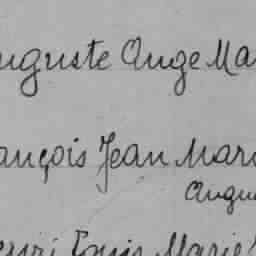 uguste Ange Ma
ançois Jean Mari
Augu
enri Louis Marie